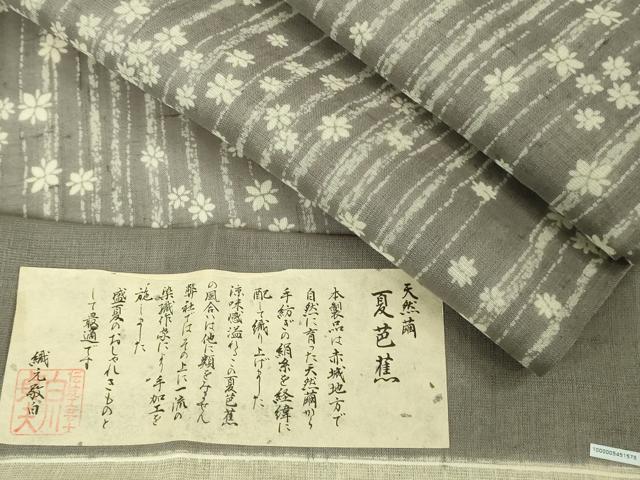 天然繭
夏芭蕉
本製品は赤城地方で
自然に育った天然繭から
手紡ぎの絹糸を経緯に
配して織り上げました
涼味感溢れるこの夏芭蕉
の風合は他に類をみません
弊社ではその上に一流の
染織作家により手加工を
施しました
盛夏のおしゃれきものと
して最適です
織元敬白
1000005451578